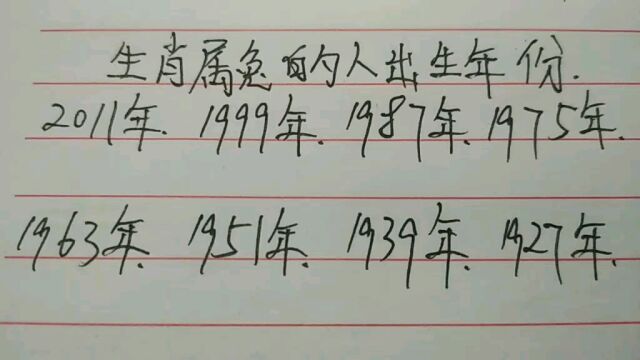 生肖属兔的人出生年份.
2011年. 1999年. 1987年. 1975年.
1963年. 1951年. 1939年. 1927年.